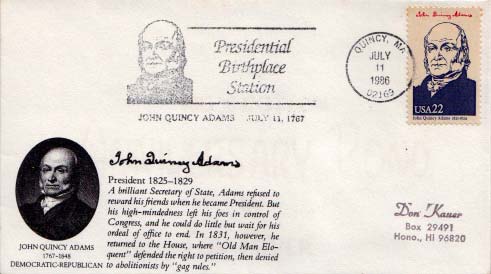 Presidential
Birthplace
Station
JOHN QUINCY ADAMS JULY 11, 1767
QUINCY, MA
JULY
11
1986
02169
John Quincy Adams
USA22
John Quincy Adams
John Quincy Adams
President 1825–1829
A brilliant Secretary of State, Adams refused to
reward his friends when he became President. But
his high-mindedness left his foes in control of
Congress, and he could do little but wait for his
ordeal of office to end. In 1831, however, he
returned to the House, where "Old Man Elo-
quent" defended the right to petition, then denied
to abolitionists by "gag rules."
JOHN QUINCY ADAMS
1767-1848
DEMOCRATIC-REPUBLICAN
Don Kauer
Box 29491
Hono., HI 96820